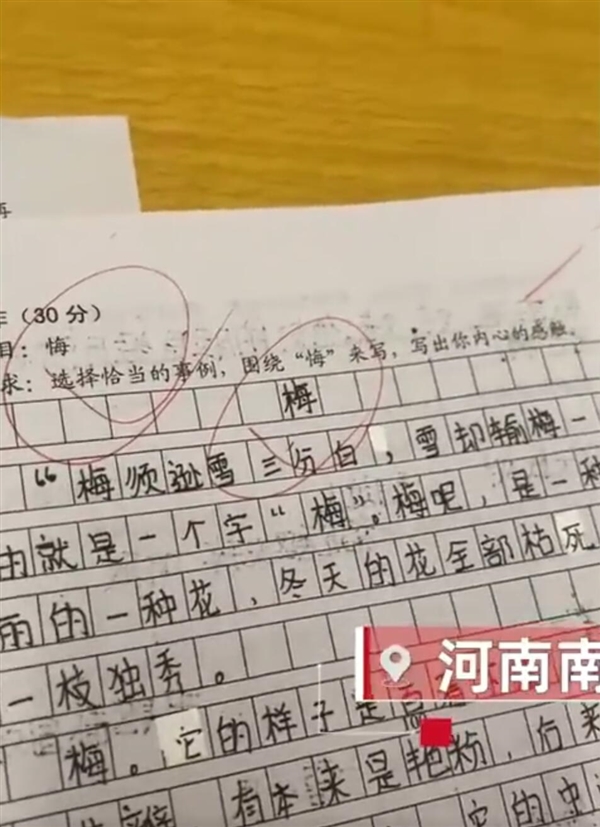 (30分)
目：悔
求：选择恰当的事例，围绕“悔”来写，写出你内心的感触。
梅
“梅须逊雪三份白，雪却输梅一
由就是一个字“梅”。梅呢，是一种
雨的一种花，冬天的花全部枯死
一枝独秀。
梅。它的样子是
看本来是艳粉，后
它的
河南南